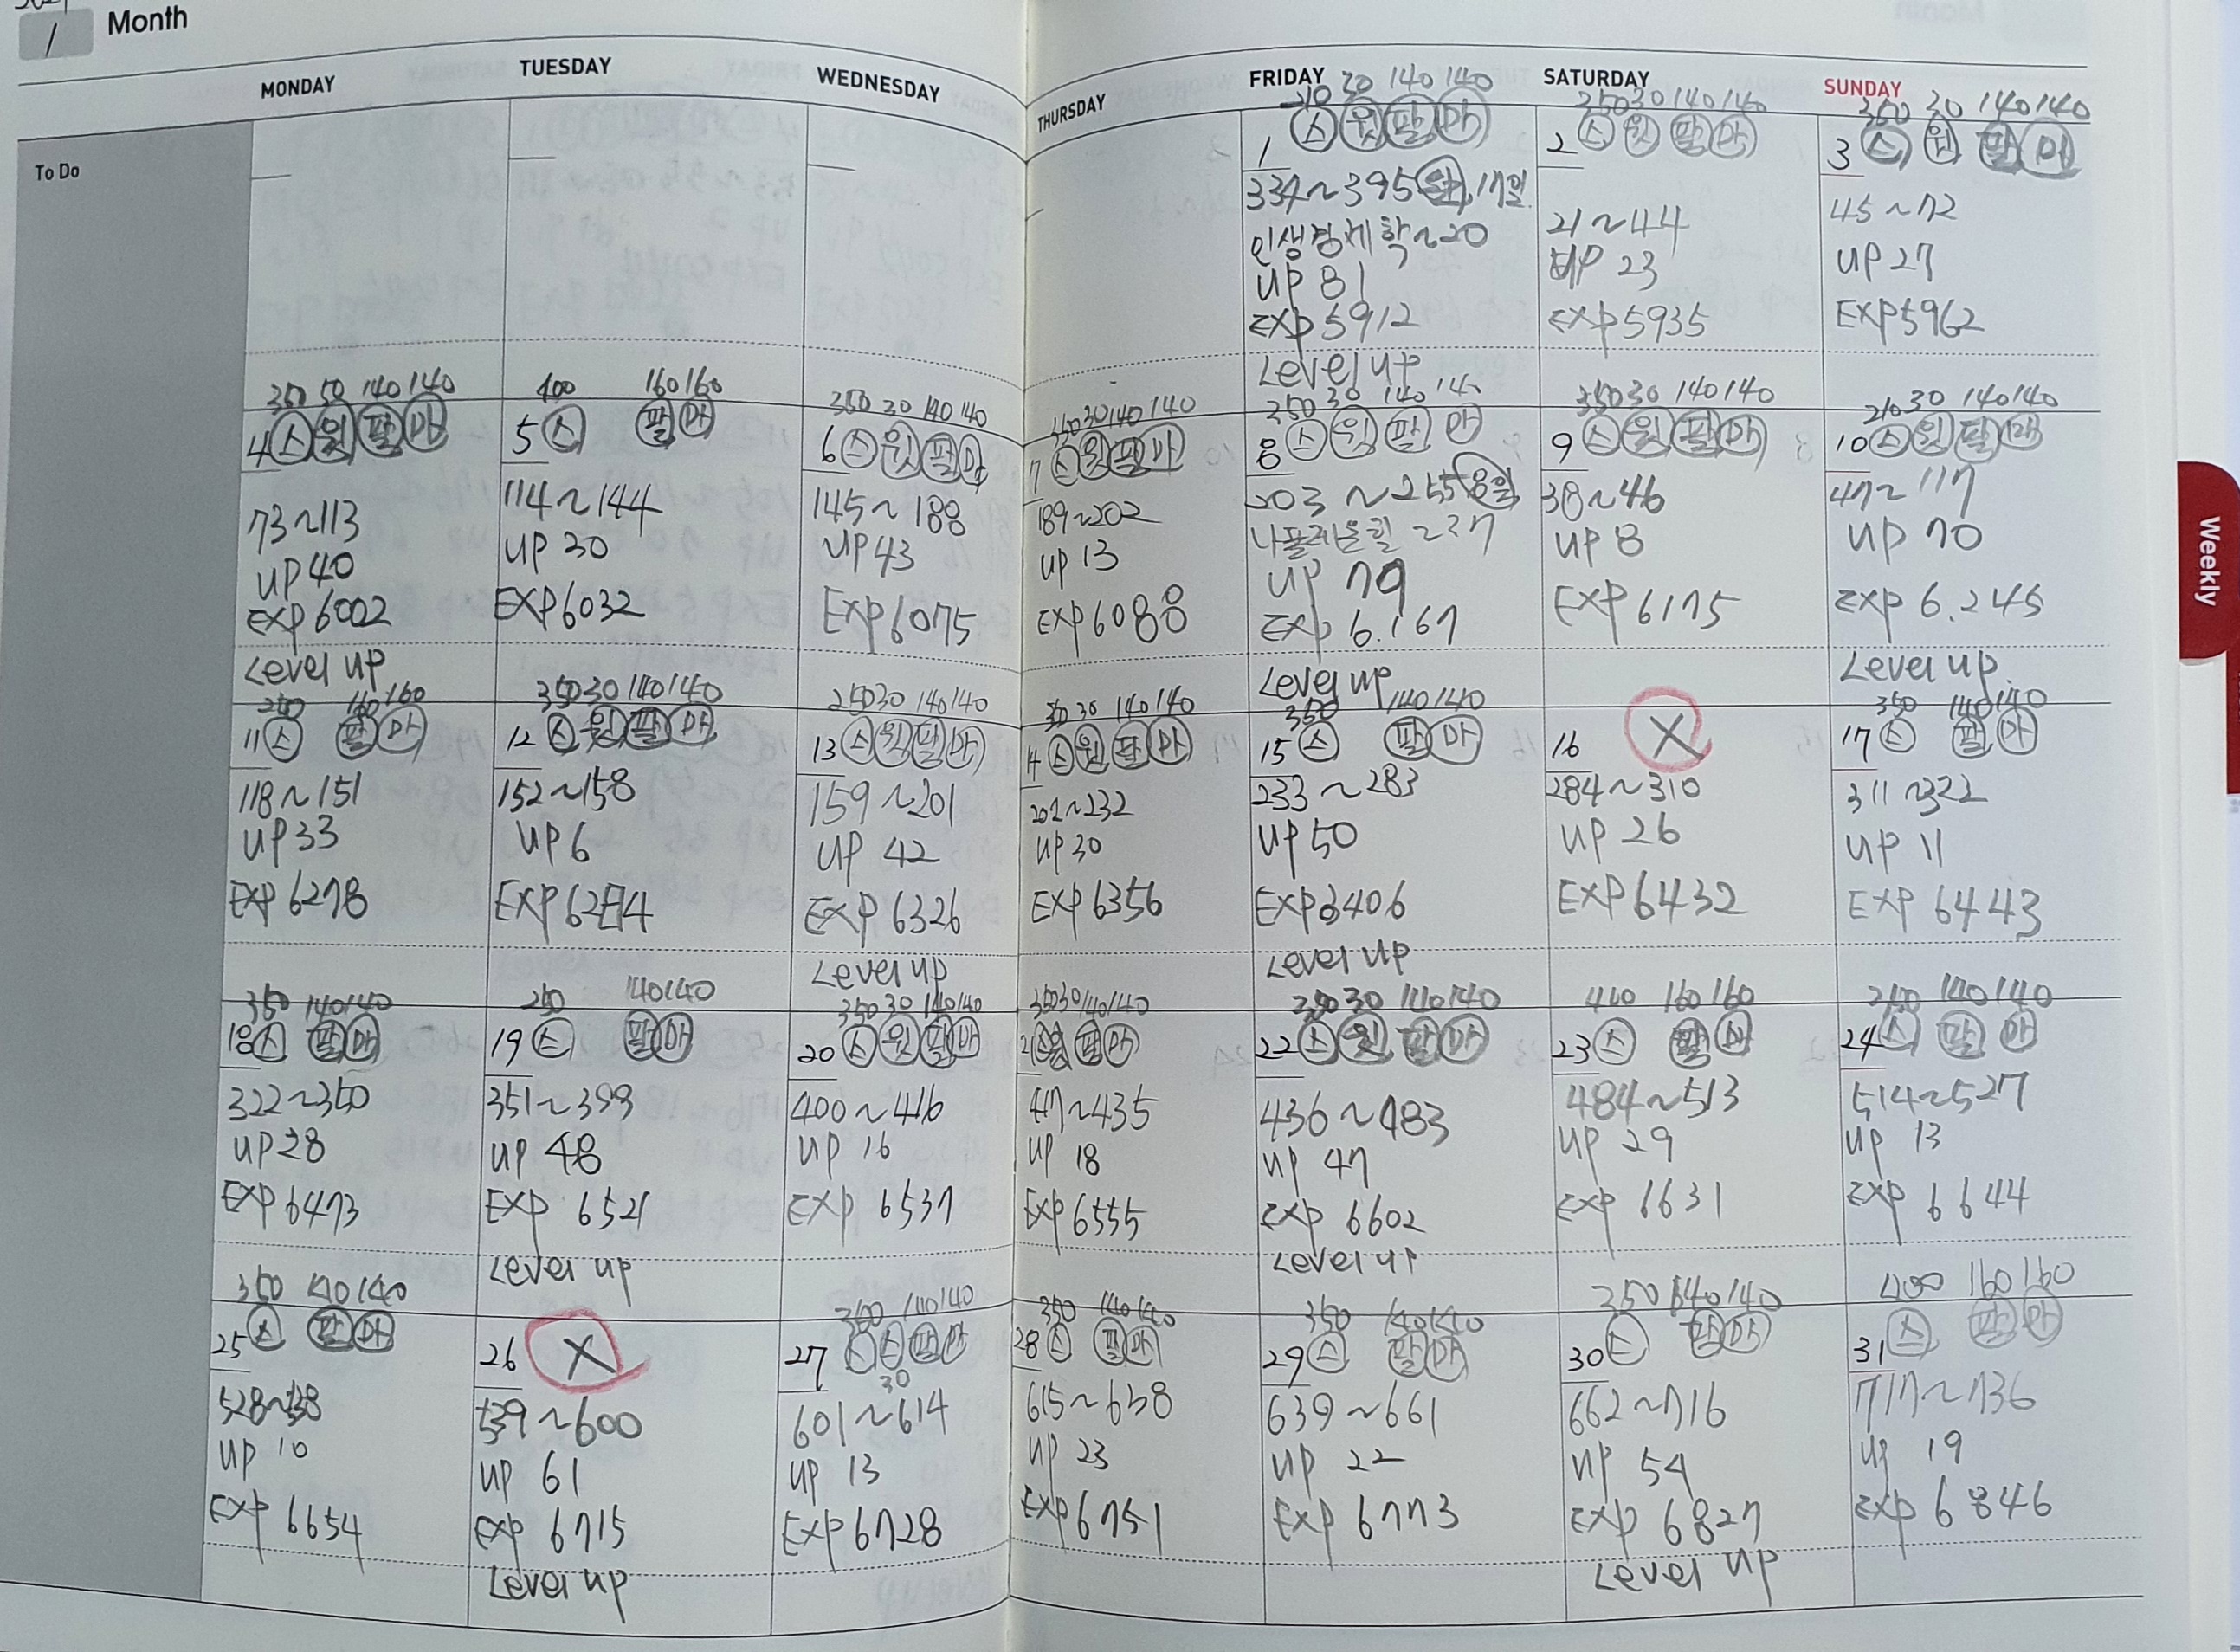 1 Month
MONDAY TUESDAY WEDNESDAY THURSDAY FRIDAY SATURDAY SUNDAY
To Do
210 30 140 140
1 스 윗 팔 마
334~395 17일
인생경제학~20
UP 81
EXP 5912
Level up
250 30 140 140
2 스 윗 팔 마
21~44
UP 23
EXP 5935
350 30 140 140
3 스 윗 팔 마
45~72
UP 27
EXP 5962
350 50 140 140
4 스 윗 팔 마
73~113
UP 40
EXP 6002
Level up
400 160 160
5 스 팔 마
114~144
UP 30
EXP 6032
350 30 140 140
6 스 윗 팔 마
145~188
UP 43
EXP 6075
350 30 140 140
7 스 윗 팔 마
189~202
UP 13
EXP 6088
350 30 140 140
8 스 윗 팔 마
203~255 8일
나폴레온힐 ~37
UP 79
EXP 6.167
Level up
350 30 140 140
9 스 윗 팔 마
38~46
UP 8
EXP 6175
210 30 140 140
10 스 윗 팔 마
47~117
UP 70
EXP 6.245
Level up
250 160 160
11 스 팔 마
118~151
UP 33
EXP 6278
350 30 140 140
12 스 윗 팔 마
152~158
UP 6
EXP 6284
250 30 140 140
13 스 윗 팔 마
159~201
UP 42
EXP 6326
Level up
350 30 140 140
14 스 윗 팔 마
202~232
UP 30
EXP 6356
350 140 140
15 스 팔 마
233~283
UP 50
EXP 6406
Level up
16 X
284~310
UP 26
EXP 6432
350 140 140
17 스 팔 마
311~322
UP 11
EXP 6443
350 140 140
18 스 팔 마
322~350
UP 28
EXP 6473
250 140 140
19 스 팔 마
351~399
UP 48
EXP 6521
Level up
350 30 140 140
20 스 윗 팔 마
400~416
UP 16
EXP 6537
350 30 140 140
21 스 윗 팔 마
417~435
UP 18
EXP 6555
250 30 140 140
22 스 윗 팔 마
436~483
UP 47
EXP 6602
Level up
440 160 160
23 스 팔
484~513
UP 29
EXP 6631
250 140 140
24 스 팔 마
514~527
UP 13
EXP 6644
350 140 140
25 스 팔 마
528~538
UP 10
EXP 6654
26 X
539~600
UP 61
EXP 6715
Level up
300 140 140
27 스 팔 마
30
601~614
UP 13
EXP 6728
350 140 140
28 스 팔 마
615~638
UP 23
EXP 6751
350 140 140
29 스 팔 마
639~661
UP 22
EXP 6773
350 140 140
30 스 팔 마
662~716
UP 54
EXP 6827
Level up
400 160 160
31 스 팔 마
717~736
UP 19
EXP 6846
Weekly